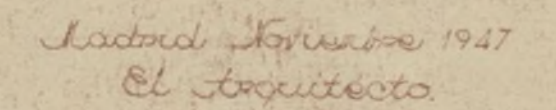 Madrid Noviembre 1947
El Arquitecto